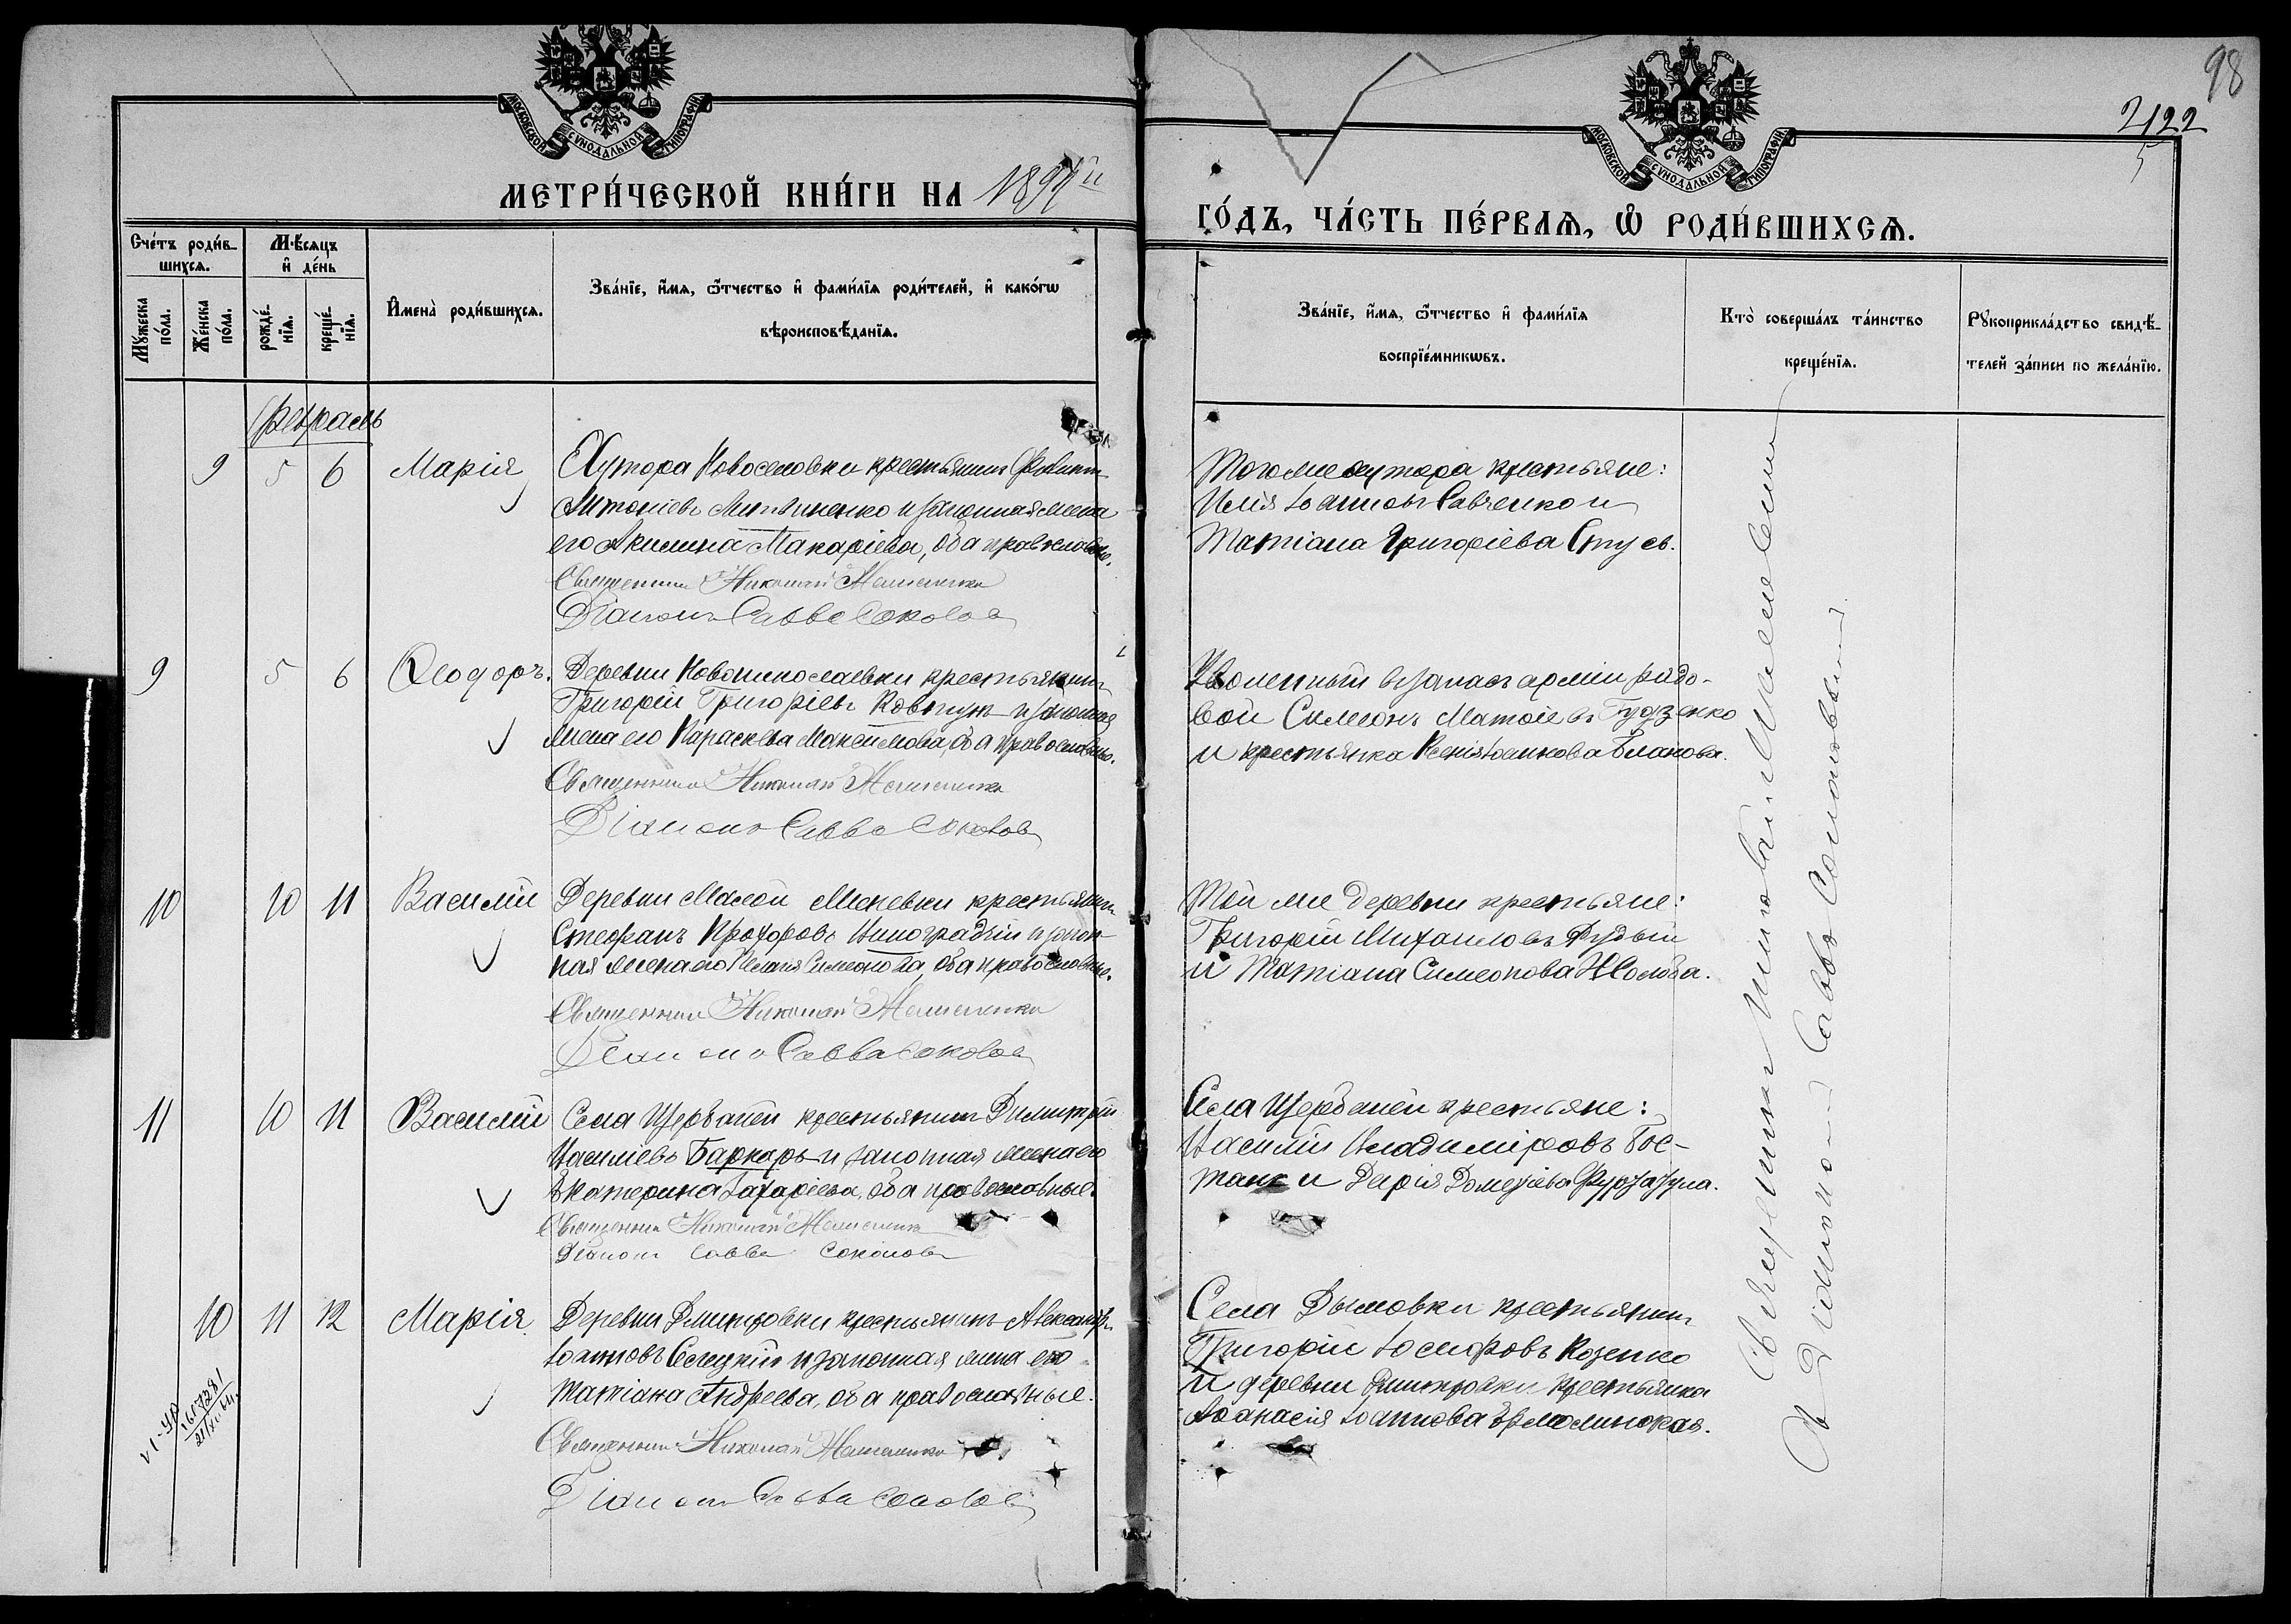 98
2122
5
МОСКОВСКОЙ СУНОДАЛЬНОЙ ТИПОГРАФІИ
МОСКОВСКОЙ СУНОДАЛЬНОЙ ТИПОГРАФІИ
МЕТРИ́ЧЕСКОЙ КНИ́ГИ НА 1894й
ГО́ДЪ, ЧА́СТЬ ПЕ́РВАѦ, Ѡ РОДИ́ВШИХСѦ.
Сче́тъ роди́вшихсѧ.
Мѣ́сѧцъ и҆ де́нь
Мꙋ́жеска по́ла.
Же́нска по́ла.
рожде́нїѧ.
креще́нїѧ.
И҆мена̀ роди́вшихсѧ.
Зва́нїе, и҆́мѧ, ѻ҆́тчество и҆ фами́лїѧ роди́телей, и҆ како́гѡ
вѣроисповѣ́данїѧ.
Зва́нїе, и҆́мѧ, ѻ҆́тчество и҆ фами́лїѧ
воспрїе́мникѡвъ.
Кто̀ соверша́лъ та́инство
креще́нїѧ.
Рꙋкоприкла́дство свидѣ́-
телей за́писи по жела́нїю.
Февраль
9 5 6 Марія Хутора Новоселовки крестьянинъ Филиппъ
Антоніевъ Литвиненко и законная жена
его Акилина Макаріева, оба православные.
Священникъ Николай
Діаконъ Савва Соколовъ
Того же хутора крестьяне:
Илія Іоанновъ Савченко и
Татіана Григоріева Стусь.
9 5 6 Ѳеодоръ. Деревни крестьянинъ
Григорій Григоріевъ Ковтунъ и законная
жена его Параскева Максимова, оба православные.
Священникъ Николай
Діаконъ Савва Соколовъ
Уволенный въ запасъ арміи рядо-
вой Симеонъ Матѳіевъ Гудзенко
и крестьянка Ксенія Іоаннова
10 10 11 Василій Деревни Малой крестьянинъ
Стефанъ Прохоровъ Виноградній и закон-
ная жена его Пелагія Симеонова, оба православные.
Священникъ Николай
Діаконъ Савва Соколовъ
Той же деревни крестьяне:
Григорій Михаиловъ Рудый
и Татіана Симеонова
11 10 11 Василій Села Щербаней крестьянинъ Димитрій
Василіевъ Баркарь и законная жена его
Екатерина Захаріева, оба православные.
Священникъ Николай
Діаконъ Савва Соколовъ
Села Щербаней крестьяне:
Василій Владиміровъ Бос-
танъ и Дарія Дометіева
10 11 12 Марія Деревни Дмитровки крестьянинъ Александръ
Іоанновъ Селецкій и законная жена его
Татіана Андреева, оба православные.
Священникъ Николай
Діаконъ Савва Соколовъ
Села Дымовки крестьянинъ
Григорій Іосифовъ Козенко
и деревни Дмитровки крестьянка
Аѳанасія Іоаннова
Священникъ Николай
Діаконъ Савва Соколовъ